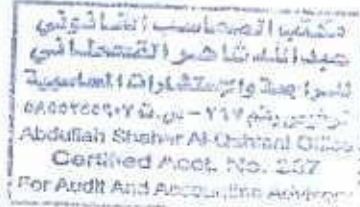 مكتب المحاسب القانوني
عبد الله شاهر القحطاني
للمراجعة والإستشارات المحاسبية
ترخيص رقم
Abdullah Shaher Al-Qahtani Office
Certified Acct. No.
For Audit And Accounting